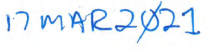 17 MAR 2021